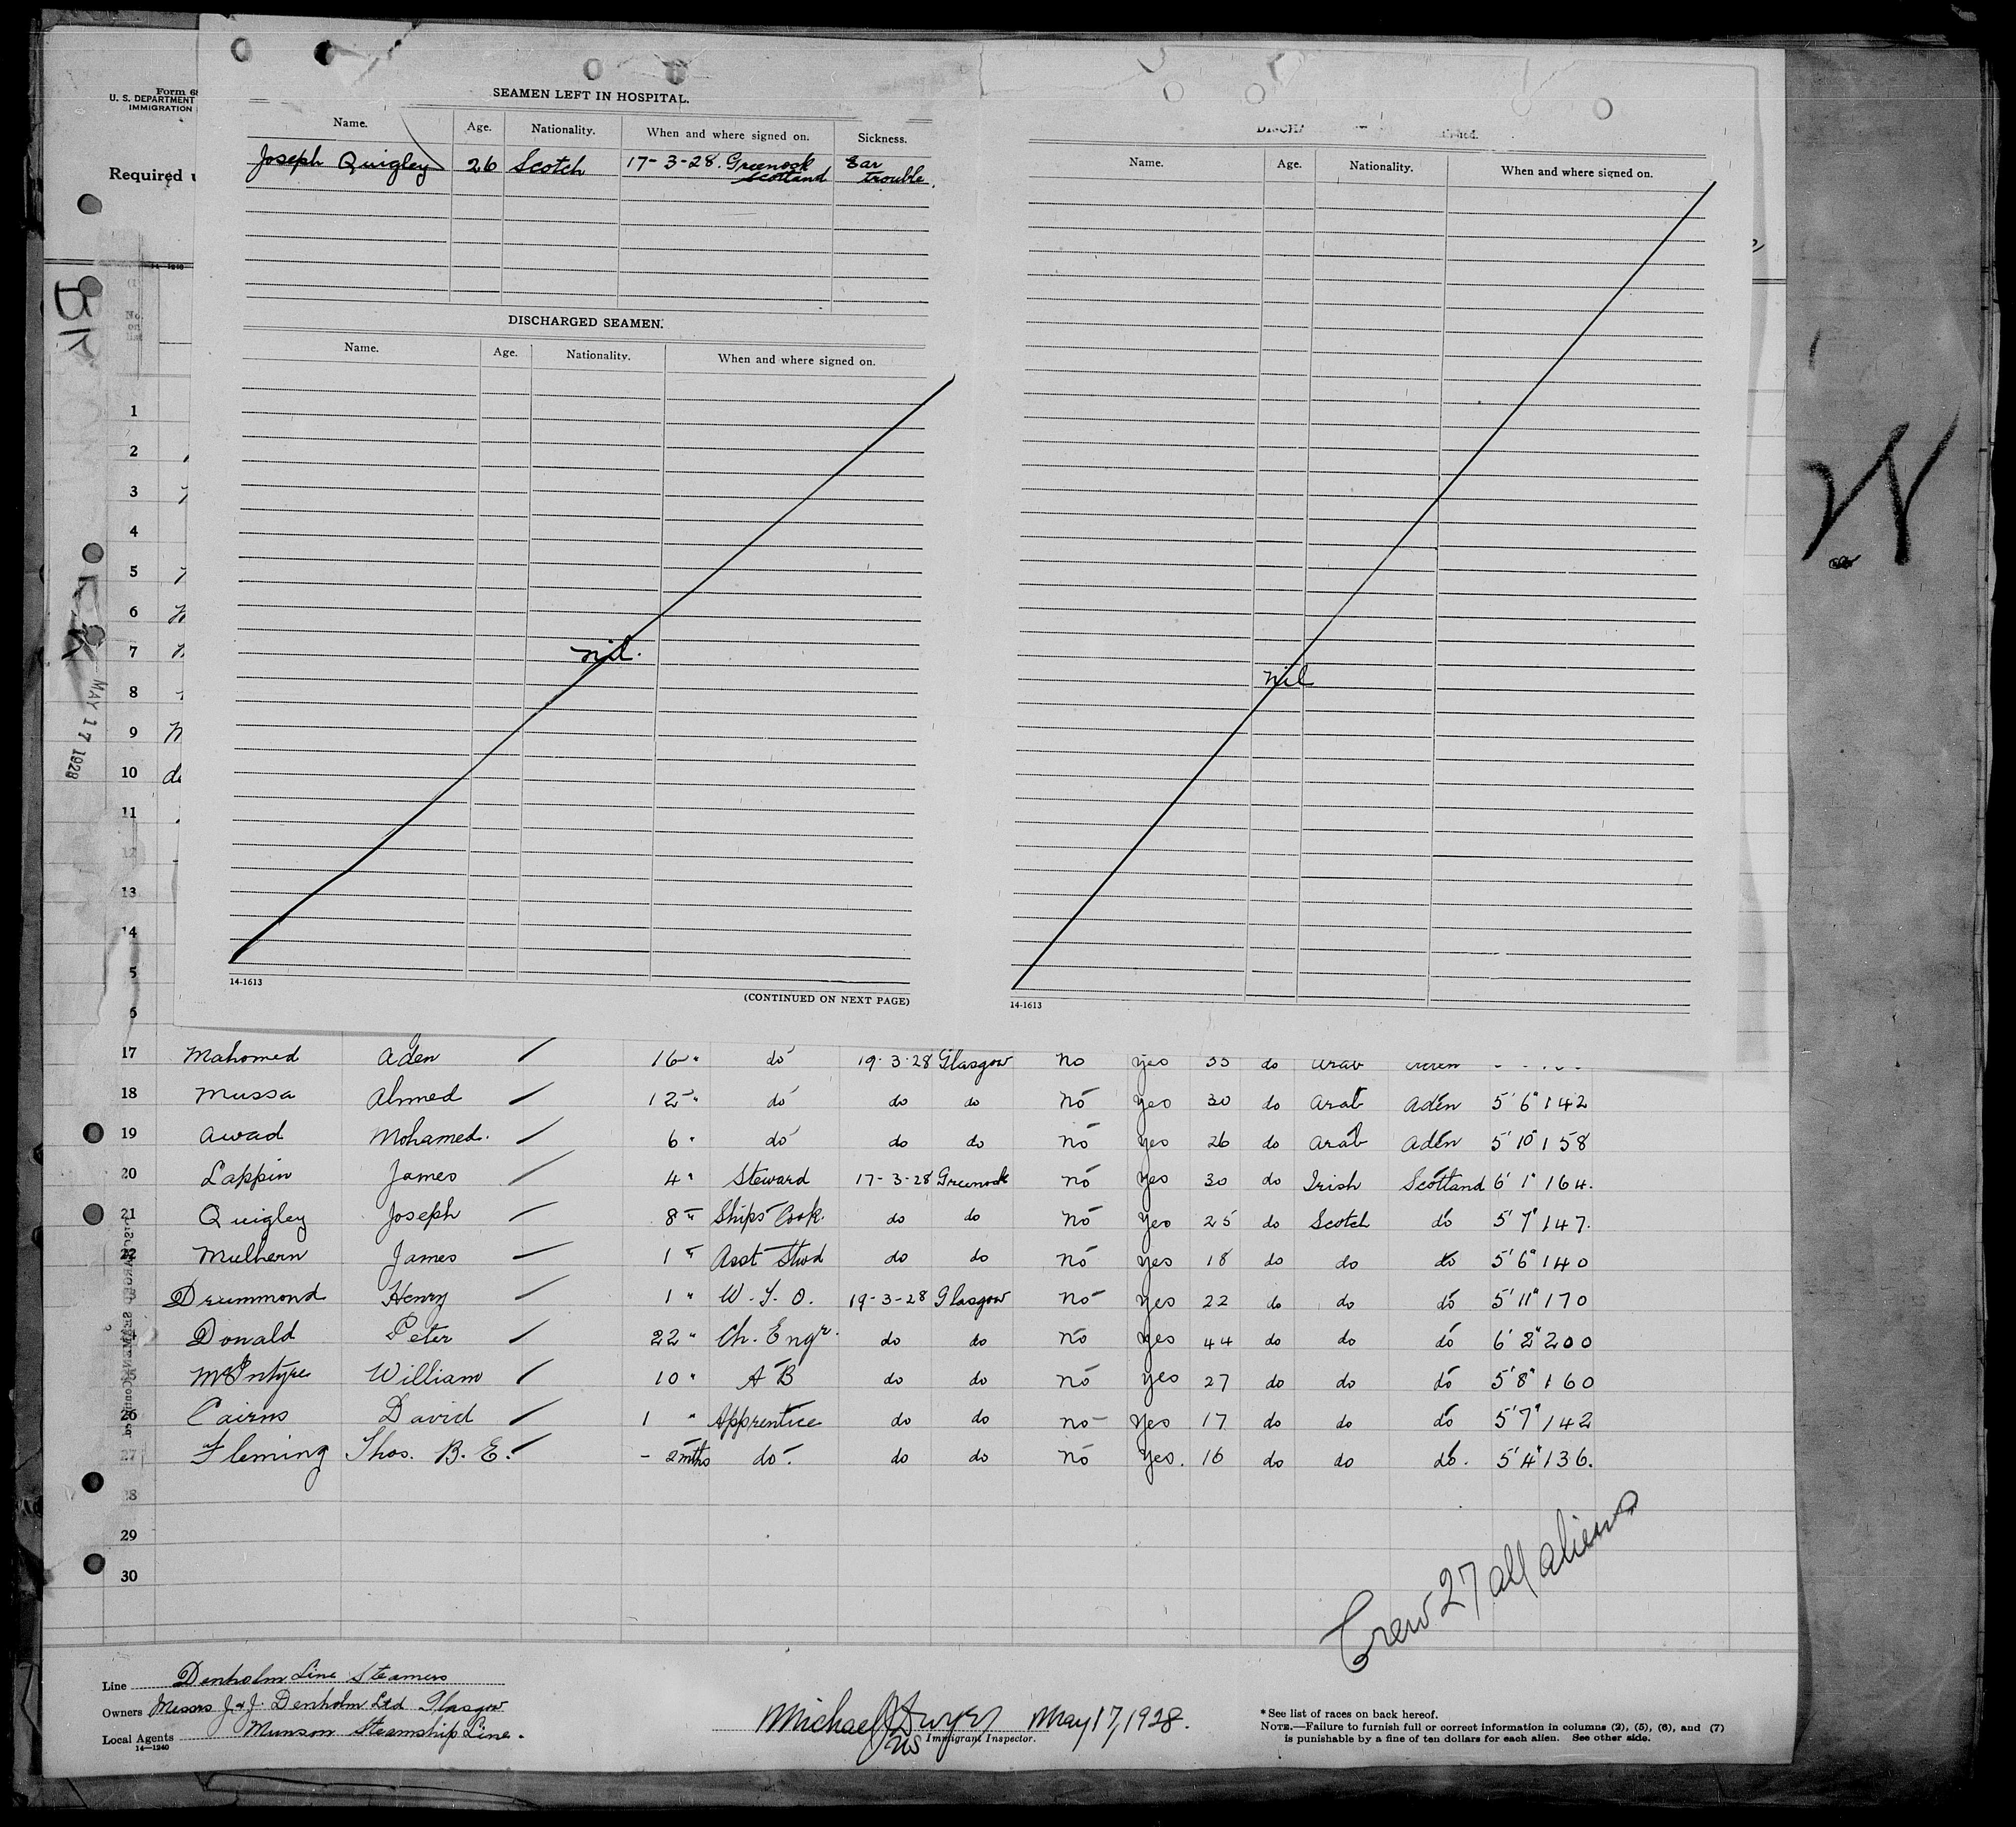 Form 68
U. S. DEPARTMENT
IMMIGRATION
Required
SEAMEN LEFT IN HOSPITAL.
Name. Age. Nationality. When and where signed on. Sickness.
Joseph Quigley 26 Scotch 17-3-28. Greenock Scotland Ear trouble.
DISCHARGED SEAMEN.
Name. Age. Nationality. When and where signed on.
nil.
14-1613
(CONTINUED ON NEXT PAGE)
Name. Age. Nationality. When and where signed on.
nil
14-1613
14-1240
No. on list
MAY 17 1928
W
1
2
3
4
5
6
7
8
9
10
11
12
13
14
5
6
17 Mahomed Aden / 16 " do 19-3-28 Glasgow no yes 35 do Arab Aden
18 Mussa Ahmed / 12 " do do do no yes 30 do Arab Aden 5' 6" 142
19 Awad Mohamed. / 6 " do do do no yes 26 do Arab Aden 5' 10" 158
20 Lappin James / 4 " Steward 17-3-28 Greenock no yes 30 do Irish Scotland 6' 1" 164.
21 Quigley Joseph / 8 " Ships Cook. do do no yes 25 do Scotch do 5' 7" 147.
22 Mulhern James / 1 " Asst Stwd do do no yes 18 do do do 5' 6" 140
3 Drummond Henry / 1 " W. T. O. 19-3-28 Glasgow no yes 22 do do do 5' 11" 170
4 Donald Peter / 22 " Ch. Engr. do do no yes 44 do do do 6' 2" 200
5 McIntyre William / 10 " A B do do no yes 27 do do do 5' 8" 160
26 Cairns David / 1 " Apprentice do do no yes 17 do do do 5' 7" 142
27 Fleming Thos. B. E. / - 2 mths do. do do no yes. 16 do do do. 5' 4" 136.
28
29
30
Crew 27 all aliens
Line Denholm Line Steamers
Owners Messrs J & J. Denholm Ltd Glasgow
Local Agents Munson Steamship Line.
14-1240
Michael J Dwyer May 17, 1928.
Immigrant Inspector.
* See list of races on back hereof.
NOTE.—Failure to furnish full or correct information in columns (2), (5), (6), and (7)
is punishable by a fine of ten dollars for each alien. See other side.